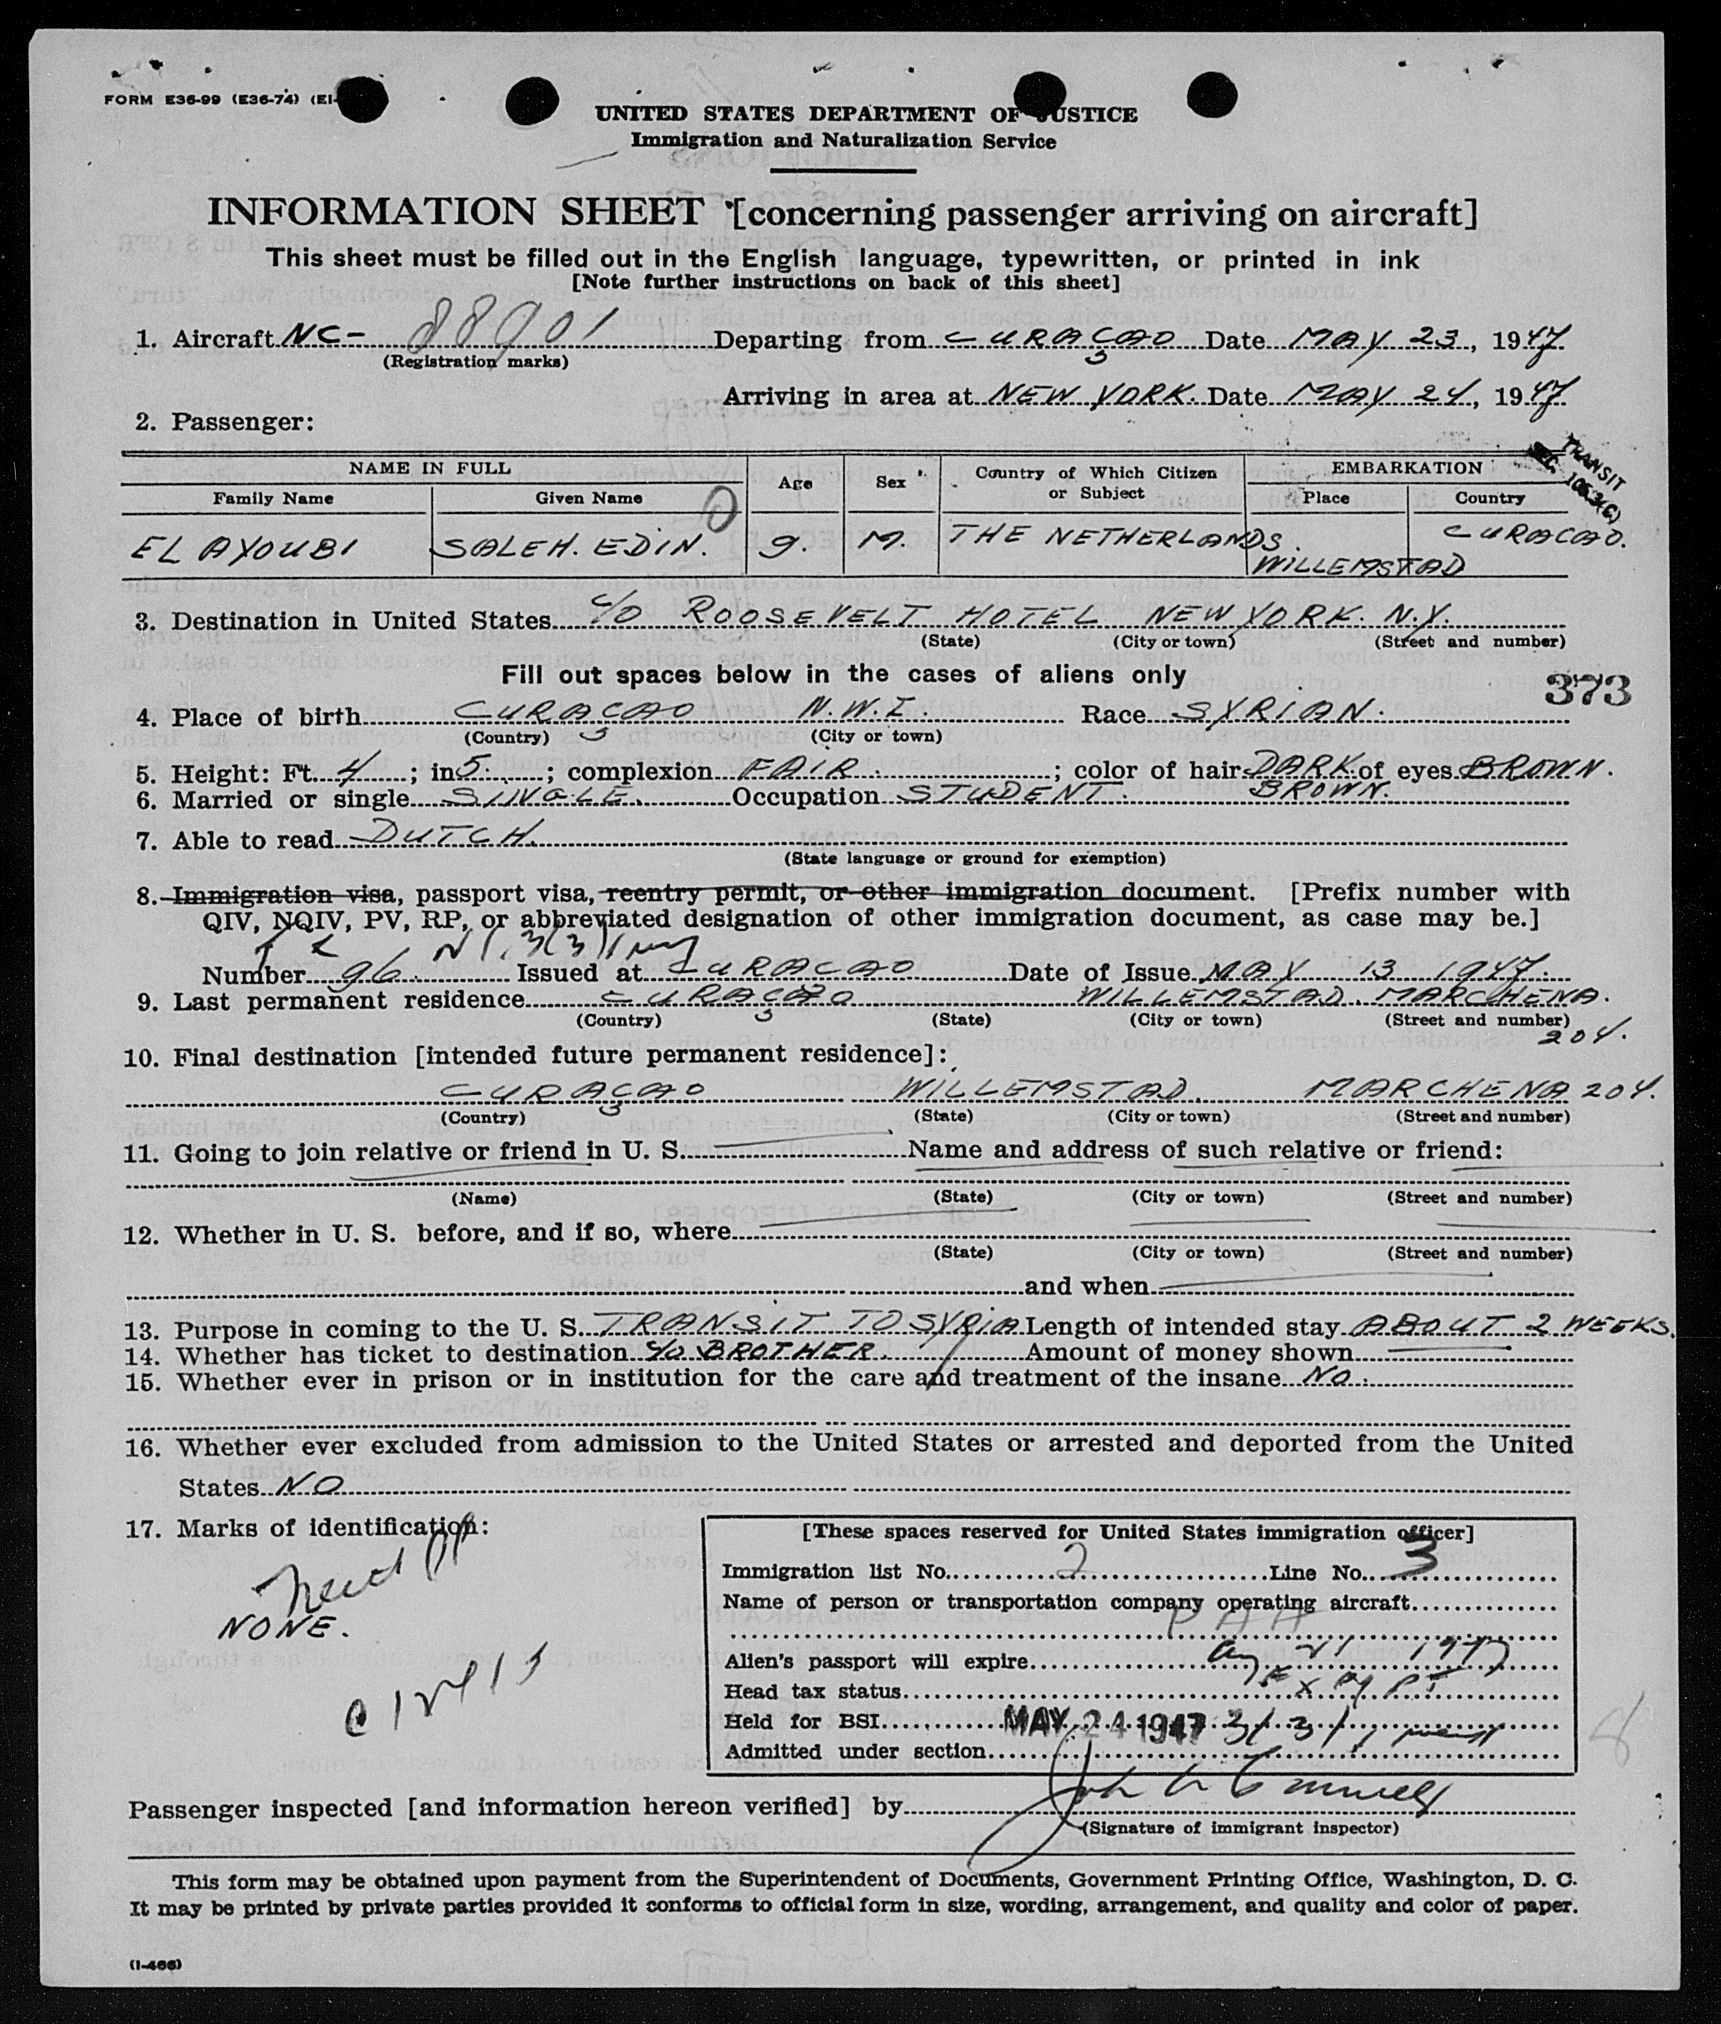 FORM E36-99 (E36-74) (EI-
UNITED STATES DEPARTMENT OF JUSTICE
Immigration and Naturalization Service
INFORMATION SHEET [concerning passenger arriving on aircraft]
This sheet must be filled out in the English language, typewritten, or printed in ink
[Note further instructions on back of this sheet]
1. Aircraft NC- 88901 Departing from CURAÇAO Date MAY 23, 1947
(Registration marks)
Arriving in area at NEW YORK. Date MAY 24, 1947
2. Passenger:
TRANSIT
SEC. 10 3(C)
NAME IN FULL Age Sex Country of Which Citizen or Subject EMBARKATION
Family Name Given Name Place Country
EL AYOUBI SALEH. EDIN. 9. M. THE NETHERLANDS. WILLEMSTAD CURACAO.
3. Destination in United States c/o ROOSEVELT HOTEL NEW YORK. N.Y.
(State) (City or town) (Street and number)
Fill out spaces below in the cases of aliens only
373
4. Place of birth CURAÇAO N.W.I. Race SYRIAN.
(Country) (City or town)
5. Height: Ft. 4; in 5.; complexion FAIR.; color of hair DARK BROWN. of eyes BROWN.
6. Married or single SINGLE. Occupation STUDENT.
7. Able to read DUTCH.
(State language or ground for exemption)
8. Immigration visa, passport visa, reentry permit, or other immigration document. [Prefix number with
QIV, NQIV, PV, RP, or abbreviated designation of other immigration document, as case may be.]
Number 96. Issued at CURACAO Date of Issue MAY 13 1947.
9. Last permanent residence CURAÇAO WILLEMSTAD MARCHENA.
(Country) (State) (City or town) (Street and number)
204.
10. Final destination [intended future permanent residence]:
CURAÇAO WILLEMSTAD. MARCHENA 204.
(Country) (State) (City or town) (Street and number)
11. Going to join relative or friend in U. S. Name and address of such relative or friend:
(Name) (State) (City or town) (Street and number)
12. Whether in U. S. before, and if so, where
(State) (City or town) (Street and number)
and when
13. Purpose in coming to the U. S. TRANSIT TO SYRIA Length of intended stay ABOUT 2 WEEKS.
14. Whether has ticket to destination c/o BROTHER. Amount of money shown
15. Whether ever in prison or in institution for the care and treatment of the insane NO.
16. Whether ever excluded from admission to the United States or arrested and deported from the United
States NO
17. Marks of identification:
NONE.
[These spaces reserved for United States immigration officer]
Immigration list No. 2 Line No. 3
Name of person or transportation company operating aircraft
P A A
Alien's passport will expire Aug 21 1947
Head tax status
Held for BSI MAY 24 1947
Admitted under section
Passenger inspected [and information hereon verified] by
(Signature of immigrant inspector)
This form may be obtained upon payment from the Superintendent of Documents, Government Printing Office, Washington, D. C.
It may be printed by private parties provided it conforms to official form in size, wording, arrangement, and quality and color of paper.
(I-466)